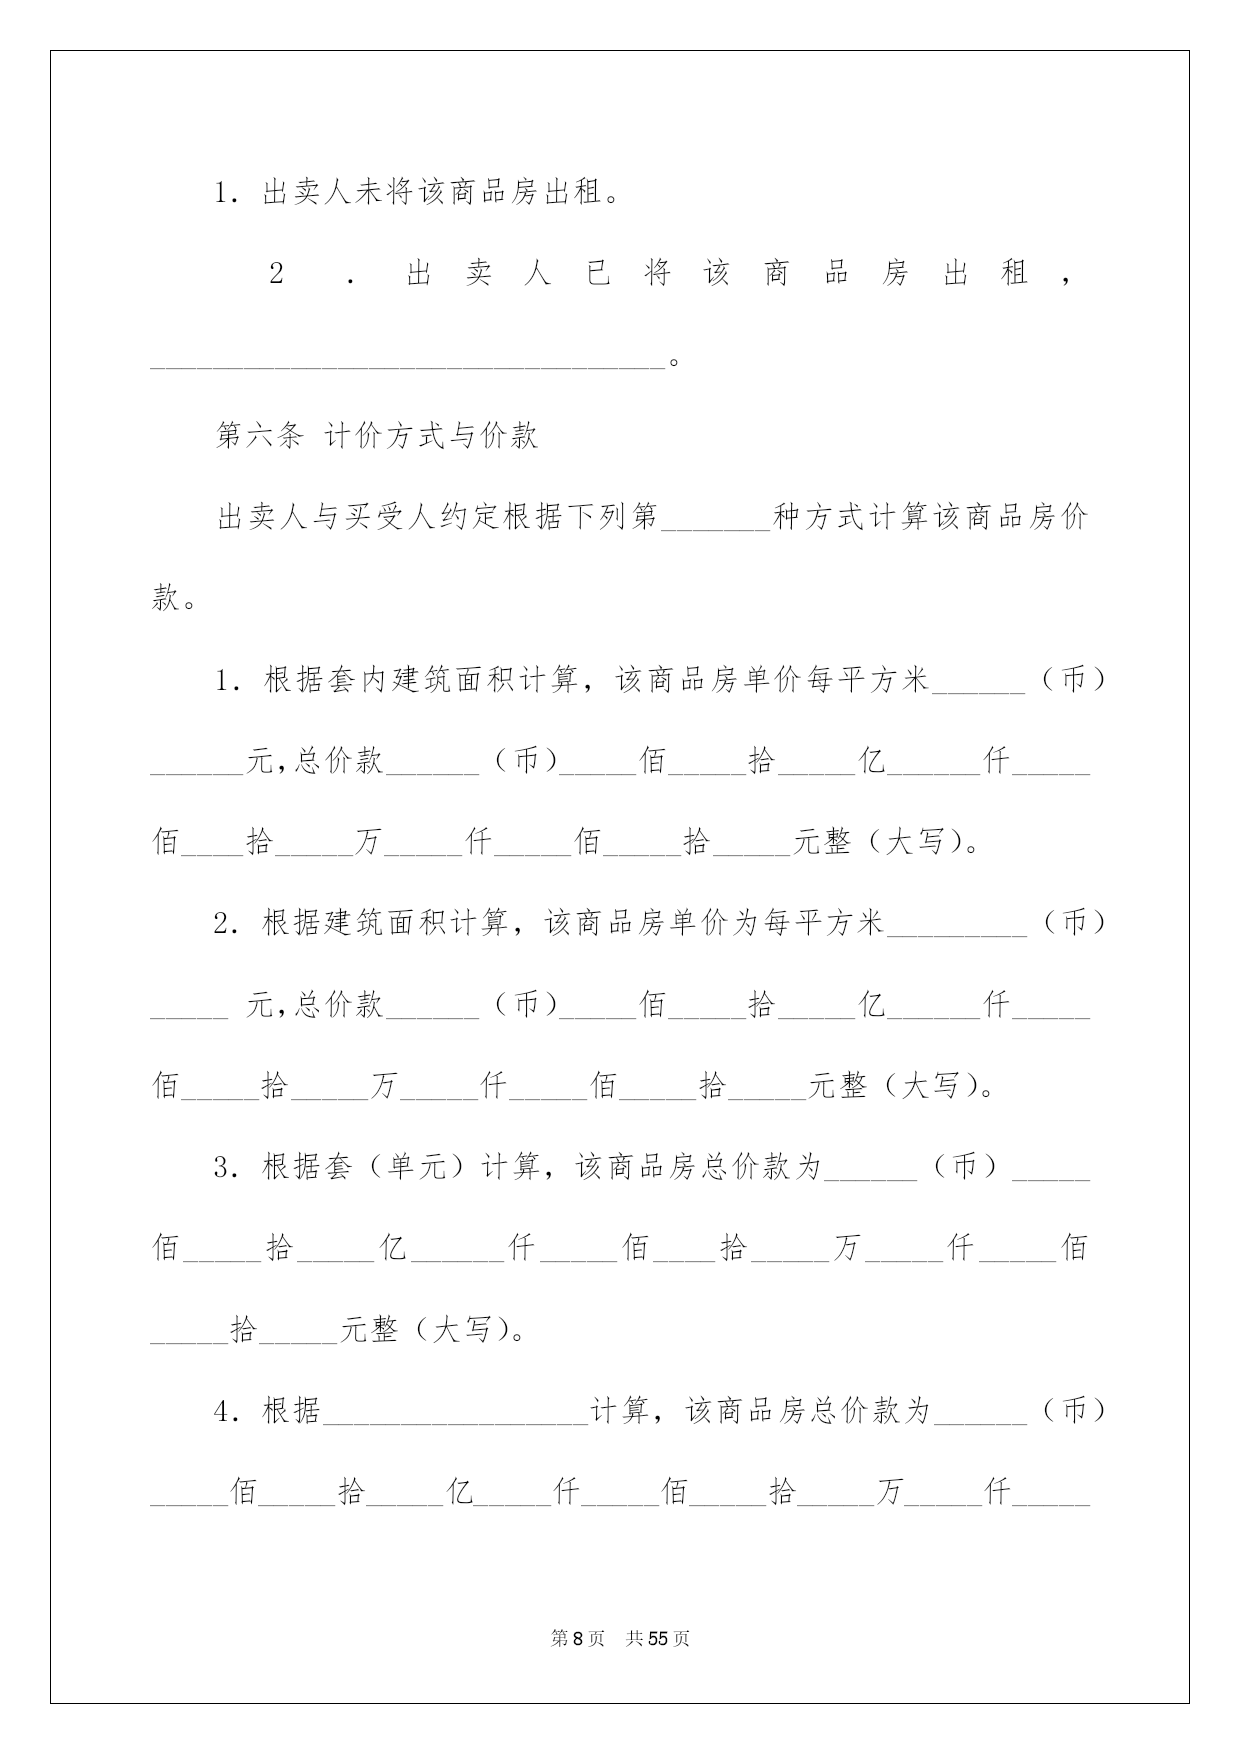 1．出卖人未将该商品房出租。
2．出卖人已将该商品房出租，
_________________________________。
第六条 计价方式与价款
出卖人与买受人约定根据下列第_______种方式计算该商品房价
款。
1．根据套内建筑面积计算，该商品房单价每平方米______（币）
______元,总价款______（币）_____佰_____拾_____亿______仟_____
佰____拾_____万_____仟_____佰_____拾_____元整（大写）。
2．根据建筑面积计算，该商品房单价为每平方米_________（币）
_____ 元,总价款______（币）_____佰_____拾_____亿______仟_____
佰_____拾_____万_____仟_____佰_____拾_____元整（大写）。
3．根据套（单元）计算，该商品房总价款为______（币）_____
佰_____拾_____亿______仟_____佰____拾_____万_____仟_____佰
_____拾_____元整（大写）。
4．根据_________________计算，该商品房总价款为______（币）
_____佰_____拾_____亿_____仟_____佰_____拾_____万_____仟_____
第 8 页 共 55 页